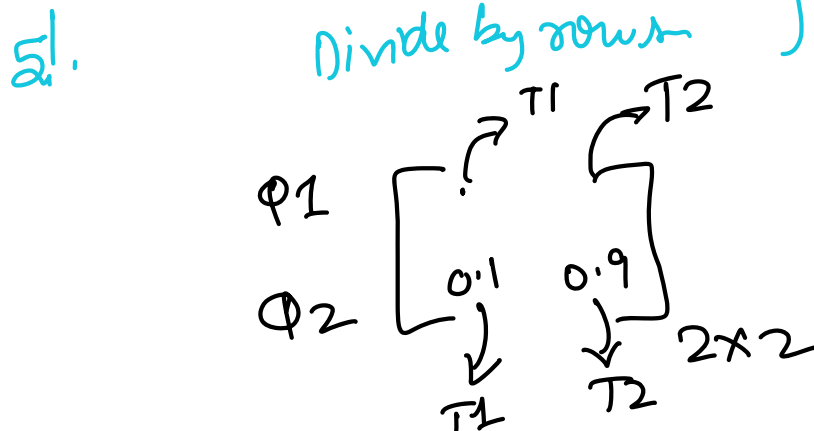 5. Divide by rows
T1 T2
Q1
Q2 0.1 0.9
2×2
T1 T2